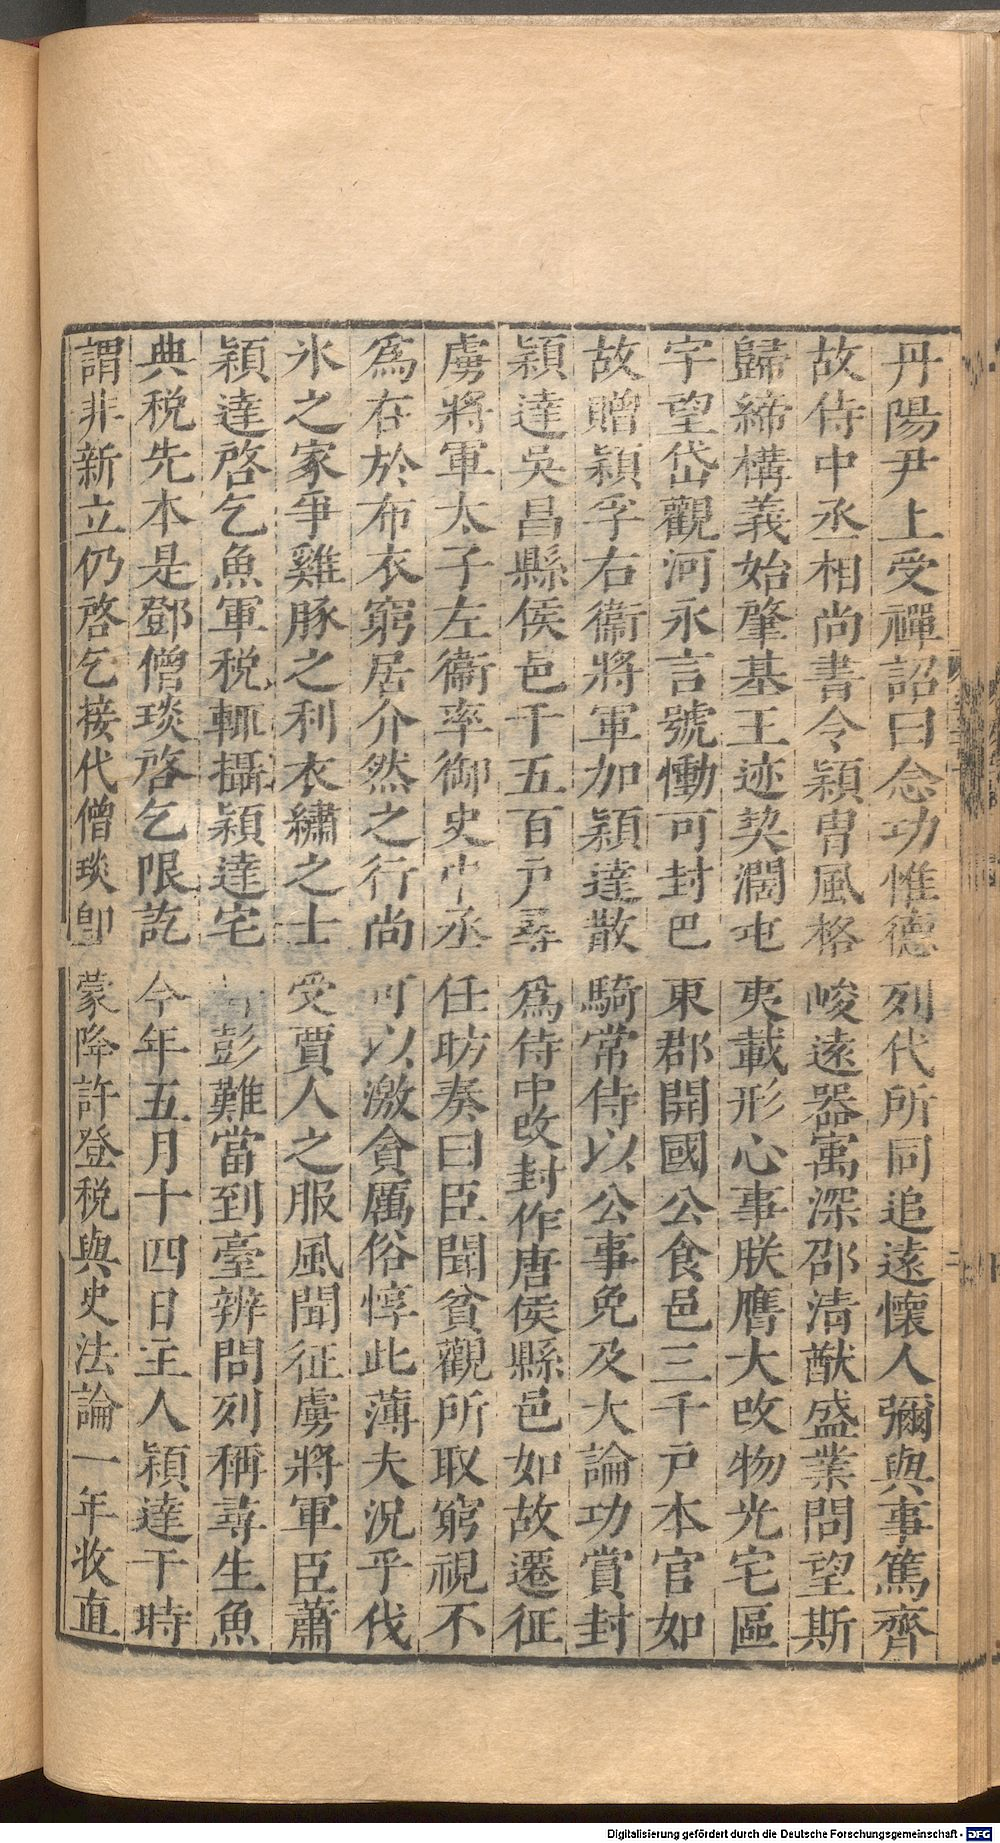 丹陽尹上受禪詔曰念功惟德列代所同追遠懷人彌與事篤齊
故侍中丞相尚書令穎胄風格峻遠器寓深邵清猷盛業問望斯
歸締構義始肇基王迹契濶屯夷載形心事朕膺大改物光宅區
宇望岱觀河永言號慟可封巴東郡開國公食邑三千戶本官如
故贈穎孚右衞將軍加穎達散騎常侍以公事免及大論功賞封
穎達吳昌縣侯邑千五百戶尋為侍中改封作唐侯縣邑如故遷征
虜將軍太子左衞率御史中丞任昉奏曰臣聞貧觀所取窮視不
為在於布衣窮居介然之行尚可以激貪厲俗惇此薄夫況乎伐
氷之家爭雞豚之利衣繡之士受賈人之服風聞征虜將軍臣蕭
穎達啓乞魚軍稅輒攝穎達宅督彭難當到臺辨問列稱尋生魚
典稅先本是鄧僧琰啓乞限訖今年五月十四日主人穎達于時
謂非新立仍啓乞接代僧琰即蒙降許登稅與史法論一年收直
Digitalisierung gefördert durch die Deutsche Forschungsgemeinschaft - DFG